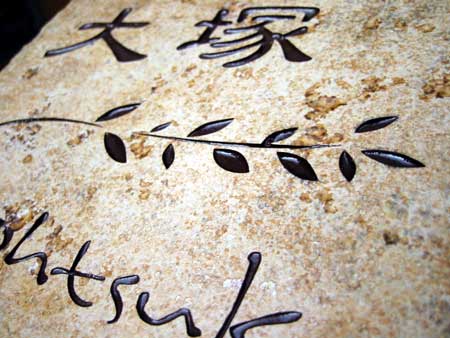 大塚
ohtsuk